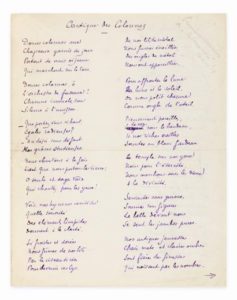 Cantique des Colonnes
Douces colonnes aux
Chapeaux garnis de jour
de vrais oiseaux
Qui marchent sur le tour
Douces colonnes ô
L'orchestre de fuseaux !
Chacun immole son
Silence à l'unisson
Que portez-vous si haut
Égales radieuses ?
désir sans défaut
Nos grâces studieuses
Nous chantons à la fois
Que nous portons les cieux
O seule et sage voix
Qui chantes pour les yeux !
Vois hymnes candides
Quelle sonorité
éléments limpides
de la clarté
Si froides et dorées
Nous fûmes de nos lits
Par le ciseau
Pour devenir ces lys
De nos lits de cristal
Nous fûmes éveillées
Des griffes de métal
Nous ont appareillées
Pour affronter la lune
La lune et le soleil
On nous polit chacune
Comme ongle de l'orteil
Pieusement pareilles
le bandeau
Et nos riches oreilles
Sourdes au blanc fardeau
Un temple sur les yeux
Noirs pour l'éternité
Nous
A la divinité
Servantes sans genoux
Sourires sans figures
La belle devant nous
Se sent les jambes pures
Nos antiques jeunesses
Chair mate et claires ombres
Sont fières des finesses
Qui naissent par les nombres